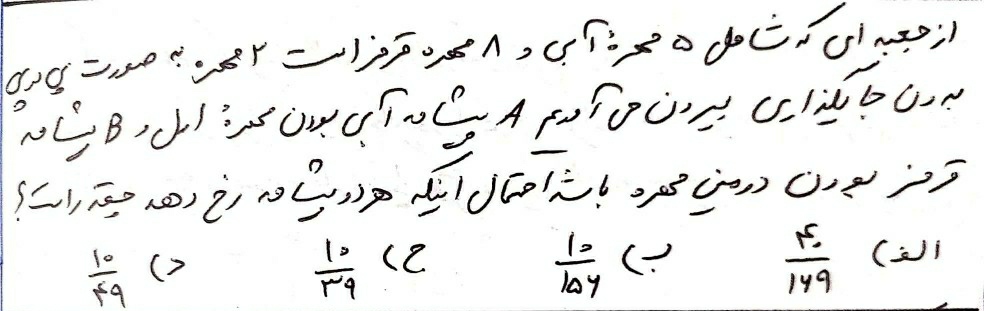 از جعبه ای که شامل ۵ مهرهٔ آبی و ۸ مهره قرمز است ۲ مهره به صورت پی در پی
بدون جایگذاری بیرون می آوریم A پیشامد آبی بودن مهرهٔ اول و B پیشامد
قرمز بودن دومین مهره باشد احتمال اینکه هر دو پیشامد رخ دهد چقدر است؟
الف) ۴۰/۱۶۹ ب) ۱۰/۱۵۶ ج) ۱۰/۳۹ د) ۱۰/۴۹